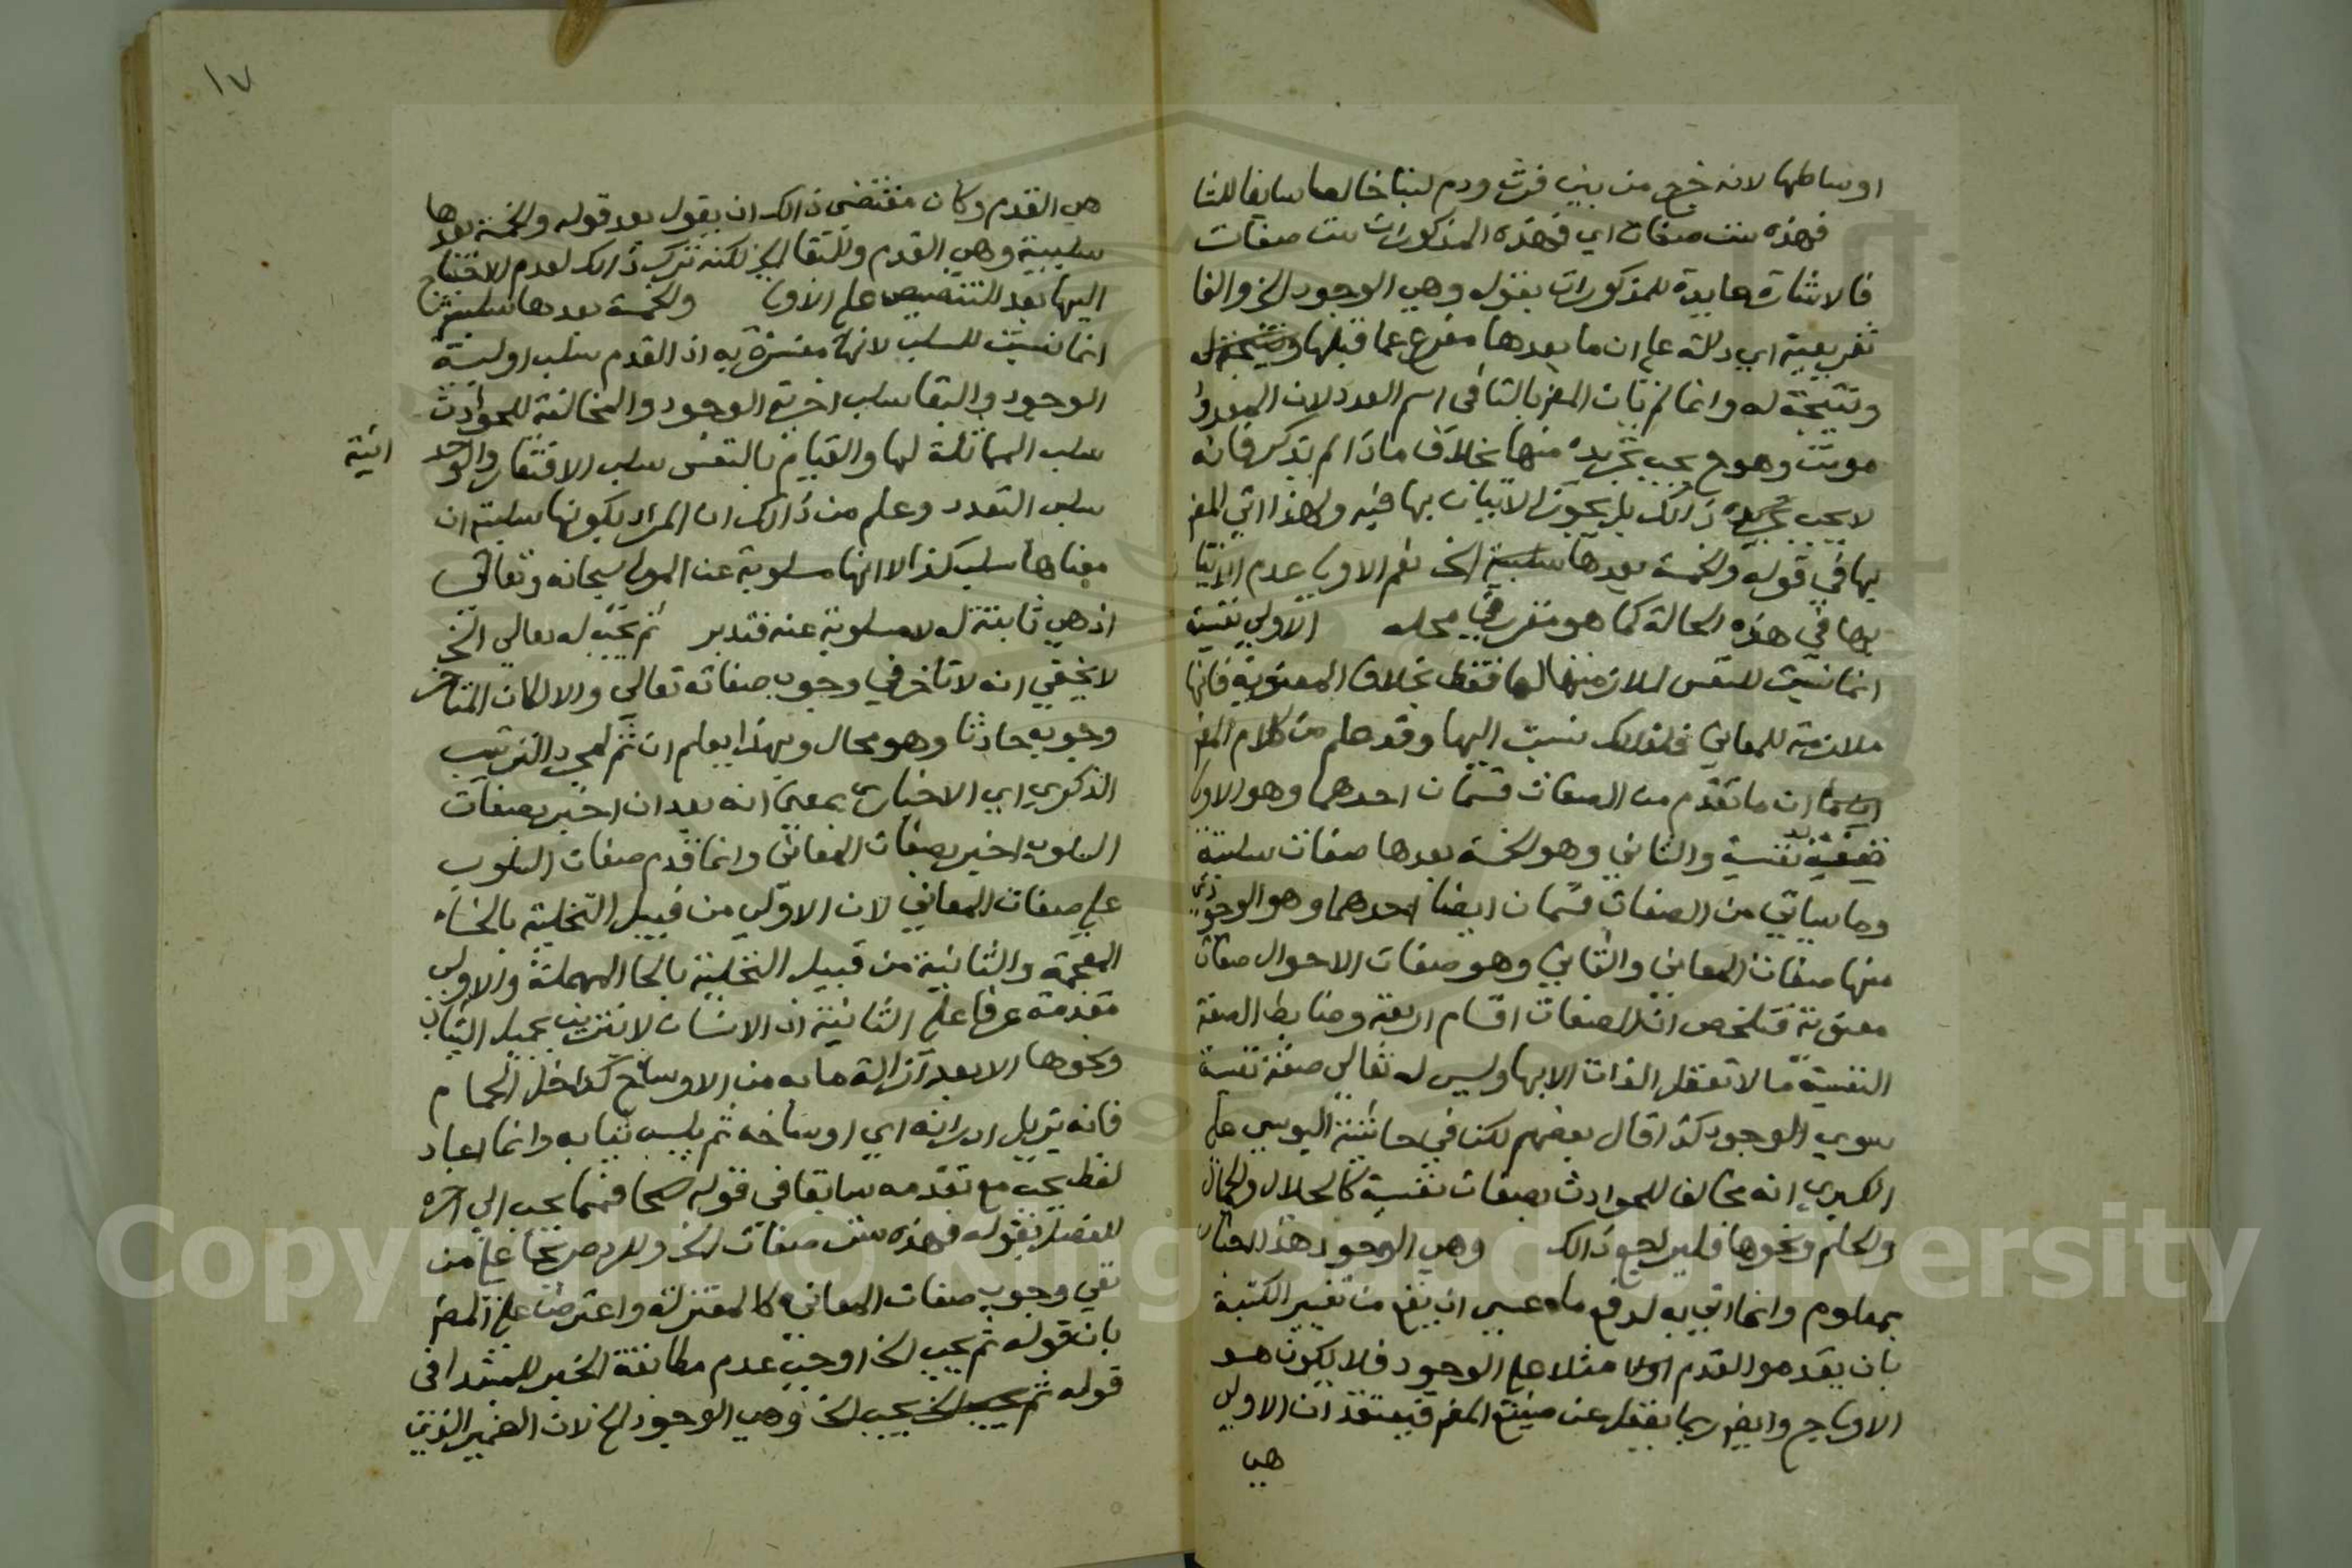 اوساطها لانه خرج من بين فرث ودم لبنا خالصا سايغا للشا
فهذه ست صفات اي فهذه المذكورات ست صفات
فالاشارة عايدة للمذكورات بقوله وهي الوجود الخ والفا
تفريعية اي دالة على ان ما بعدها مفرع عما قبلها
ونتيجة له وانما لم يات المص بالتا في اسم العدد لان المعدود
مونث وهو ح يجب تجريده منها بخلاف ما اذا لم يذكر فانه
لا يجب تجريده ذالك بل يجوز الاتيان بها فيه ولهذا اتي المص
بها في قوله والخمسة بعدها سلبية الخ نعم الاولي عدم الاتيا
بها في هذه الحالة كما هو مقرر في محله الاولي نفسية
انما نسبت للنفس لملازمتها لها فقط بخلاف المعنوية فانها
ملازمة للمعاني فلذالك نسبت اليها وقد علم من كلام المص
ان ما تقدم من الصفات قسمان احدهما وهو الاول
نفسية والثاني وهو الخمسة بعدها صفات سلبية
وما سياتي من الصفات قسمان ايضا احدهما وهو الوجودي
منها صفات المعاني والثاني وهو صفات الاحوال صفات
معنوية فتلخص ان الصفات اقسام اربعة وضابط الصفة
النفسية ما لا تعقل الذات الا بها وليس له تعالي صفة نفسية
سوي الوجود كذا قال بعضهم لكن في حاشية اليوسي علي
الكبري انه مخالف للحوادث بصفات نفسية كالجلال والجمال
والحلم ونحوها فليراجع ذالك وهي الوجود هذا
بمعلوم وانما اتي به لدفع ما عسي ان يقع من تغيير الكتبة
بان يقدموا القدم مثلا علي الوجود فلا يكون هو
الاول ح وايضا ربما يغفل عن صنيع المص فيعتقد ان الاولي
هي
١٧
هي القدم وكان مقتضي ذالك ان يقول بعد قوله والخمسة بعدها
سلبية وهي القدم والبقا الخ لكنه ترك ذالك لعدم الاحتياج
اليها بعد التنصيص علي الاولي والخمسة بعدها سلبية
انما نسبت للسلب لانها مفسرة به اذ القدم سلب اولية
الوجود والبقا سلب اخرية الوجود والمخالفة للحوادث
سلب المماثلة لها والقيام بالنفس سلب الافتقار والوحد
انية
سلب التعدد وعلم من ذالك ان المراد بكونها سلبية ان
معناها سلب كذا لا انها مسلوبة عن المولي سبحانه وتعالي
اذ هي ثابتة له لا مسلوبة عنه فتدبر ثم يجب له تعالي الخ
لا يخفي انه لا تاخر في وجوب صفاته تعالي والا لكان المتاخر
وجوبه حادثا وهو محال وبهذا يعلم ان ثم لمجرد الترتيب
الذكري اي الاخباري بمعني انه بعد ان اخبر بصفات
السلوب اخبر بصفات المعاني وانما قدم صفات السلوب
علي صفات المعاني لان الاولي من قبيل التخلية بالخاء
المعجمة والثانية من قبيل التحلية بالحا المهملة والاولي
مقدمة عرفا علي الثانية اذ الانسان لا يتزين بجميل الثياب
ونحوها الا بعد ازالة ما به من الاوساخ كداخل الحمام
فانه يزيل ادرانه اي اوساخه ثم يلبس ثيابه وانما اعاد
لفظ يجب مع تقدمه سابقا في قوله فمما يجب الي اخره
للفصل بقوله فهذه ست صفات الخ وللرد صريحا علي من
نفي وجوب صفات المعاني كالمعتزلة واعترض علي المص
بان قوله ثم يجب الخ اوجب عدم مطابقة الخبر للمبتدا في
قوله يجب الخ وهي الوجود الخ لان الضمير الذي